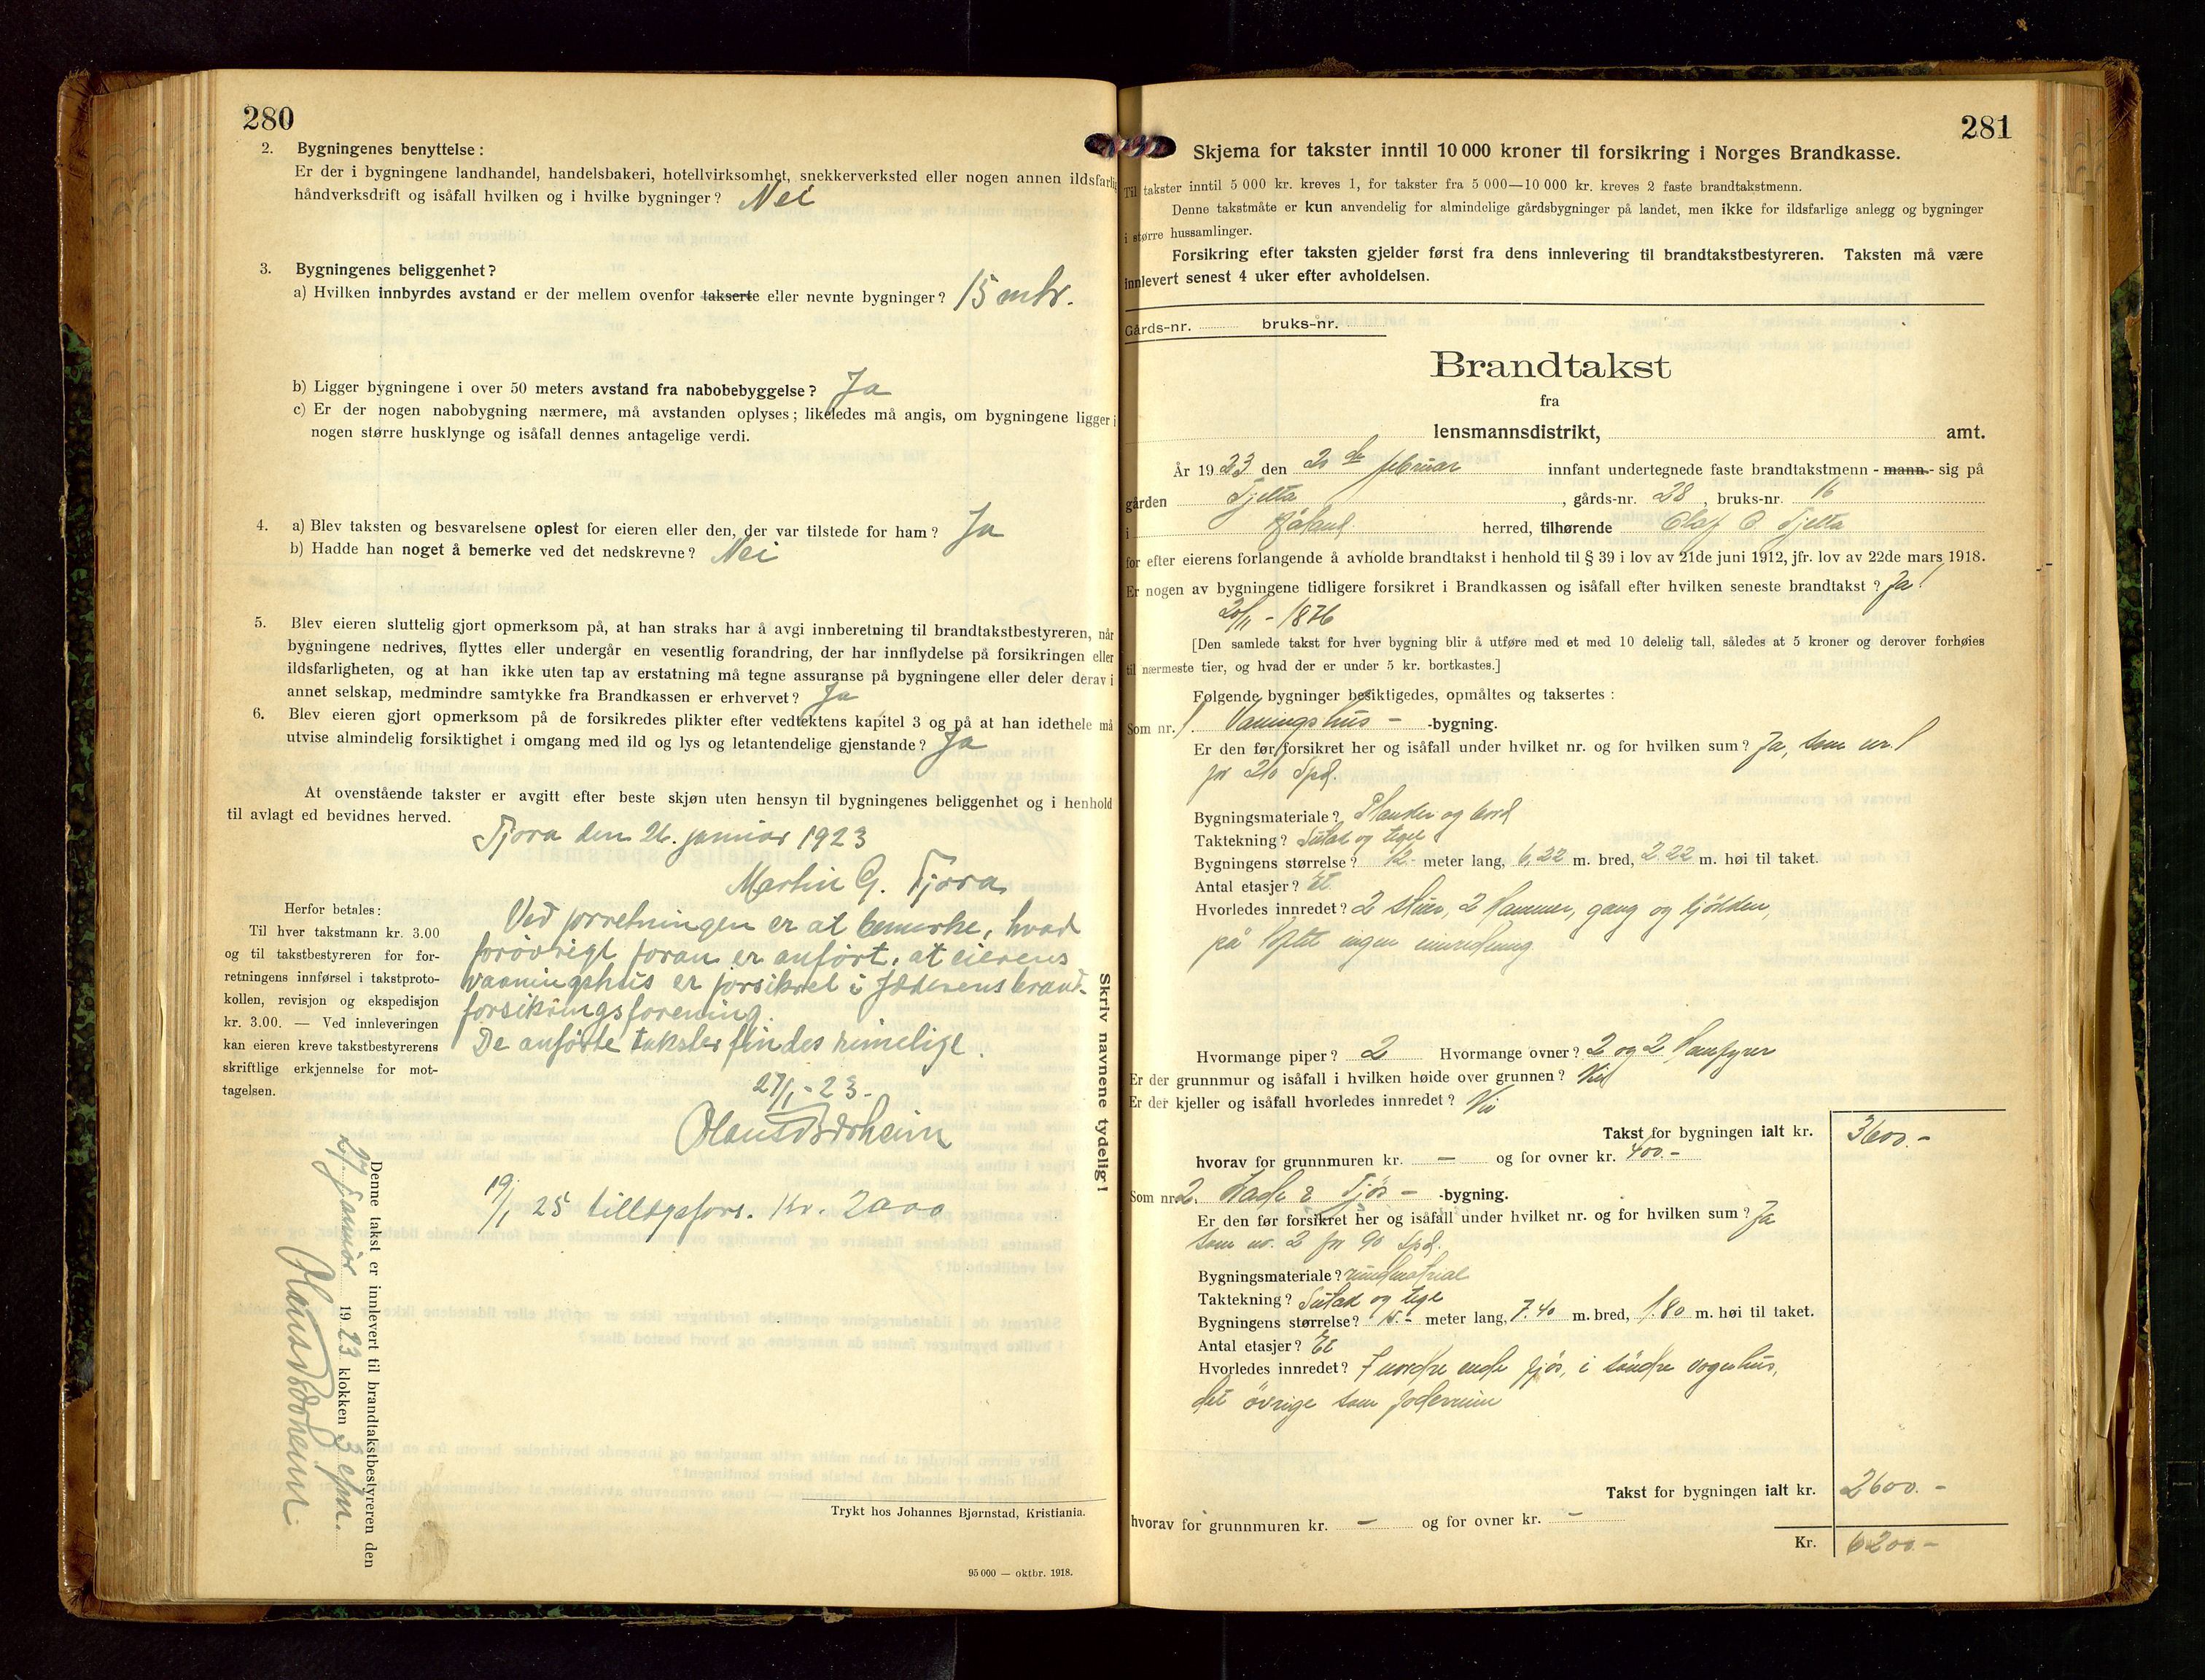 280
2. Bygningenes benyttelse:
Er der i bygningene landhandel, handelsbakeri, hotellvirksomhet, snekkerverksted eller nogen annen ildsfarlig
håndverksdrift og isåfall hvilken og i hvilke bygninger? Nei
3. Bygningenes beliggenhet?
a) Hvilken innbyrdes avstand er der mellem ovenfor takserte eller nevnte bygninger? 15 mtr.
b) Ligger bygningene i over 50 meters avstand fra nabobebyggelse? Ja
c) Er der nogen nabobygning nærmere, må avstanden oplyses; likeledes må angis, om bygningene ligger i
nogen større husklynge og isåfall dennes antagelige verdi.
4. a) Blev taksten og besvarelsene oplest for eieren eller den, der var tilstede for ham? Ja
b) Hadde han noget å bemerke ved det nedskrevne? Nei
5. Blev eieren sluttelig gjort opmerksom på, at han straks har å avgi innberetning til brandtakstbestyreren, når
bygningene nedrives, flyttes eller undergår en vesentlig forandring, der har innflydelse på forsikringen eller
ildsfarligheten, og at han ikke uten tap av erstatning må tegne assuranse på bygningene eller deler derav i
annet selskap, medmindre samtykke fra Brandkassen er erhvervet? Ja
6. Blev eieren gjort opmerksom på de forsikredes plikter efter vedtektens kapitel 3 og på at han idethele må
utvise almindelig forsiktighet i omgang med ild og lys og letantendelige gjenstande? Ja
At ovenstående takster er avgitt efter beste skjøn uten hensyn til bygningenes beliggenhet og i henhold
til avlagt ed bevidnes herved.
Tjora den 26. januar 1923
Martin G. Tjora
Herfor betales:
Til hver takstmann kr. 3.00
og til takstbestyreren for for-
retningens innførsel i takstproto-
kollen, revisjon og ekspedisjon
kr. 3.00. — Ved innleveringen
kan eieren kreve takstbestyrerens
skriftlige erkjennelse for mot-
tagelsen.
Ved forretningen er at bemerke, hvad
forøvrigt foran er anført, at eierens
vaaningshus er forsikret i Jæderens brand-
forsikringsforening.
De anførte takster findes rimelige.
27/1 - 23.
19/1 25 tillægsfors. Kr. 2000
Skriv navnene tydelig!
Denne takst er innlevert til brandtakstbestyreren den
27 januar 1923 klokken 3 efm.
Trykt hos Johannes Bjørnstad, Kristiania.
95 000 — oktbr. 1918.
281
Skjema for takster inntil 10 000 kroner til forsikring i Norges Brandkasse.
Til takster inntil 5 000 kr. kreves 1, for takster fra 5 000—10 000 kr. kreves 2 faste brandtakstmenn.
Denne takstmåte er kun anvendelig for almindelige gårdsbygninger på landet, men ikke for ildsfarlige anlegg og bygninger
i større hussamlinger.
Forsikring efter taksten gjelder først fra dens innlevering til brandtakstbestyreren. Taksten må være
innlevert senest 4 uker efter avholdelsen.
Gårds-nr. bruks-nr.
Brandtakst
fra
lensmannsdistrikt, amt.
År 1923 den februar innfant undertegnede faste brandtakstmenn - mann - sig på
gården Tjelta, gårds-nr. 28, bruks-nr. 16
i Håland herred, tilhørende Olaf C. Tjelta
for efter eierens forlangende å avholde brandtakst i henhold til § 39 i lov av 21de juni 1912, jfr. lov av 22de mars 1918.
Er nogen av bygningene tidligere forsikret i Brandkassen og isåfall efter hvilken seneste brandtakst? Ja!
- 1876
[Den samlede takst for hver bygning blir å utføre med et med 10 delelig tall, således at 5 kroner og derover forhøies
til nærmeste tier, og hvad der er under 5 kr. bortkastes.]
Følgende bygninger besiktigedes, opmåltes og taksertes:
Som nr. 1. Vaningshus - -bygning.
Er den før forsikret her og isåfall under hvilket nr. og for hvilken sum? Ja, som nr. 1
for 210 Spd.
Bygningsmateriale? Planker og bord
Taktekning? Sutak og tegl
Bygningens størrelse? 12 meter lang, 6,22 m. bred, 2.22 m. høi til taket.
Antal etasjer? Et
Hvorledes innredet? 2 stuer, 2 Kammer, gang og kjökken,
på loftet ingen innredning
Hvormange piper? 2 Hvormange ovner? 2 og 2 Komfyrer
Er der grunnmur og isåfall i hvilken høide over grunnen? Nei
Er der kjeller og isåfall hvorledes innredet? Nei
Takst for bygningen ialt kr. 3600.-
hvorav for grunnmuren kr. - og for ovner kr. 400.-
Som nr. 2. Lade & Fjøs - -bygning.
Er den før forsikret her og isåfall under hvilket nr. og for hvilken sum? Ja
som nr. 2 for 90 Spd.
Bygningsmateriale?
Taktekning? Sutak og tegl
Bygningens størrelse? 15.- meter lang, 7.40 m. bred, 1.80 m. høi til taket.
Antal etasjer? Et
Hvorledes innredet? I nordre ende fjös, i söndre vognhus,
det övrige som foderrum
Takst for bygningen ialt kr. 2600.-
hvorav for grunnmuren kr. - og for ovner kr. -
Kr. 6200.-